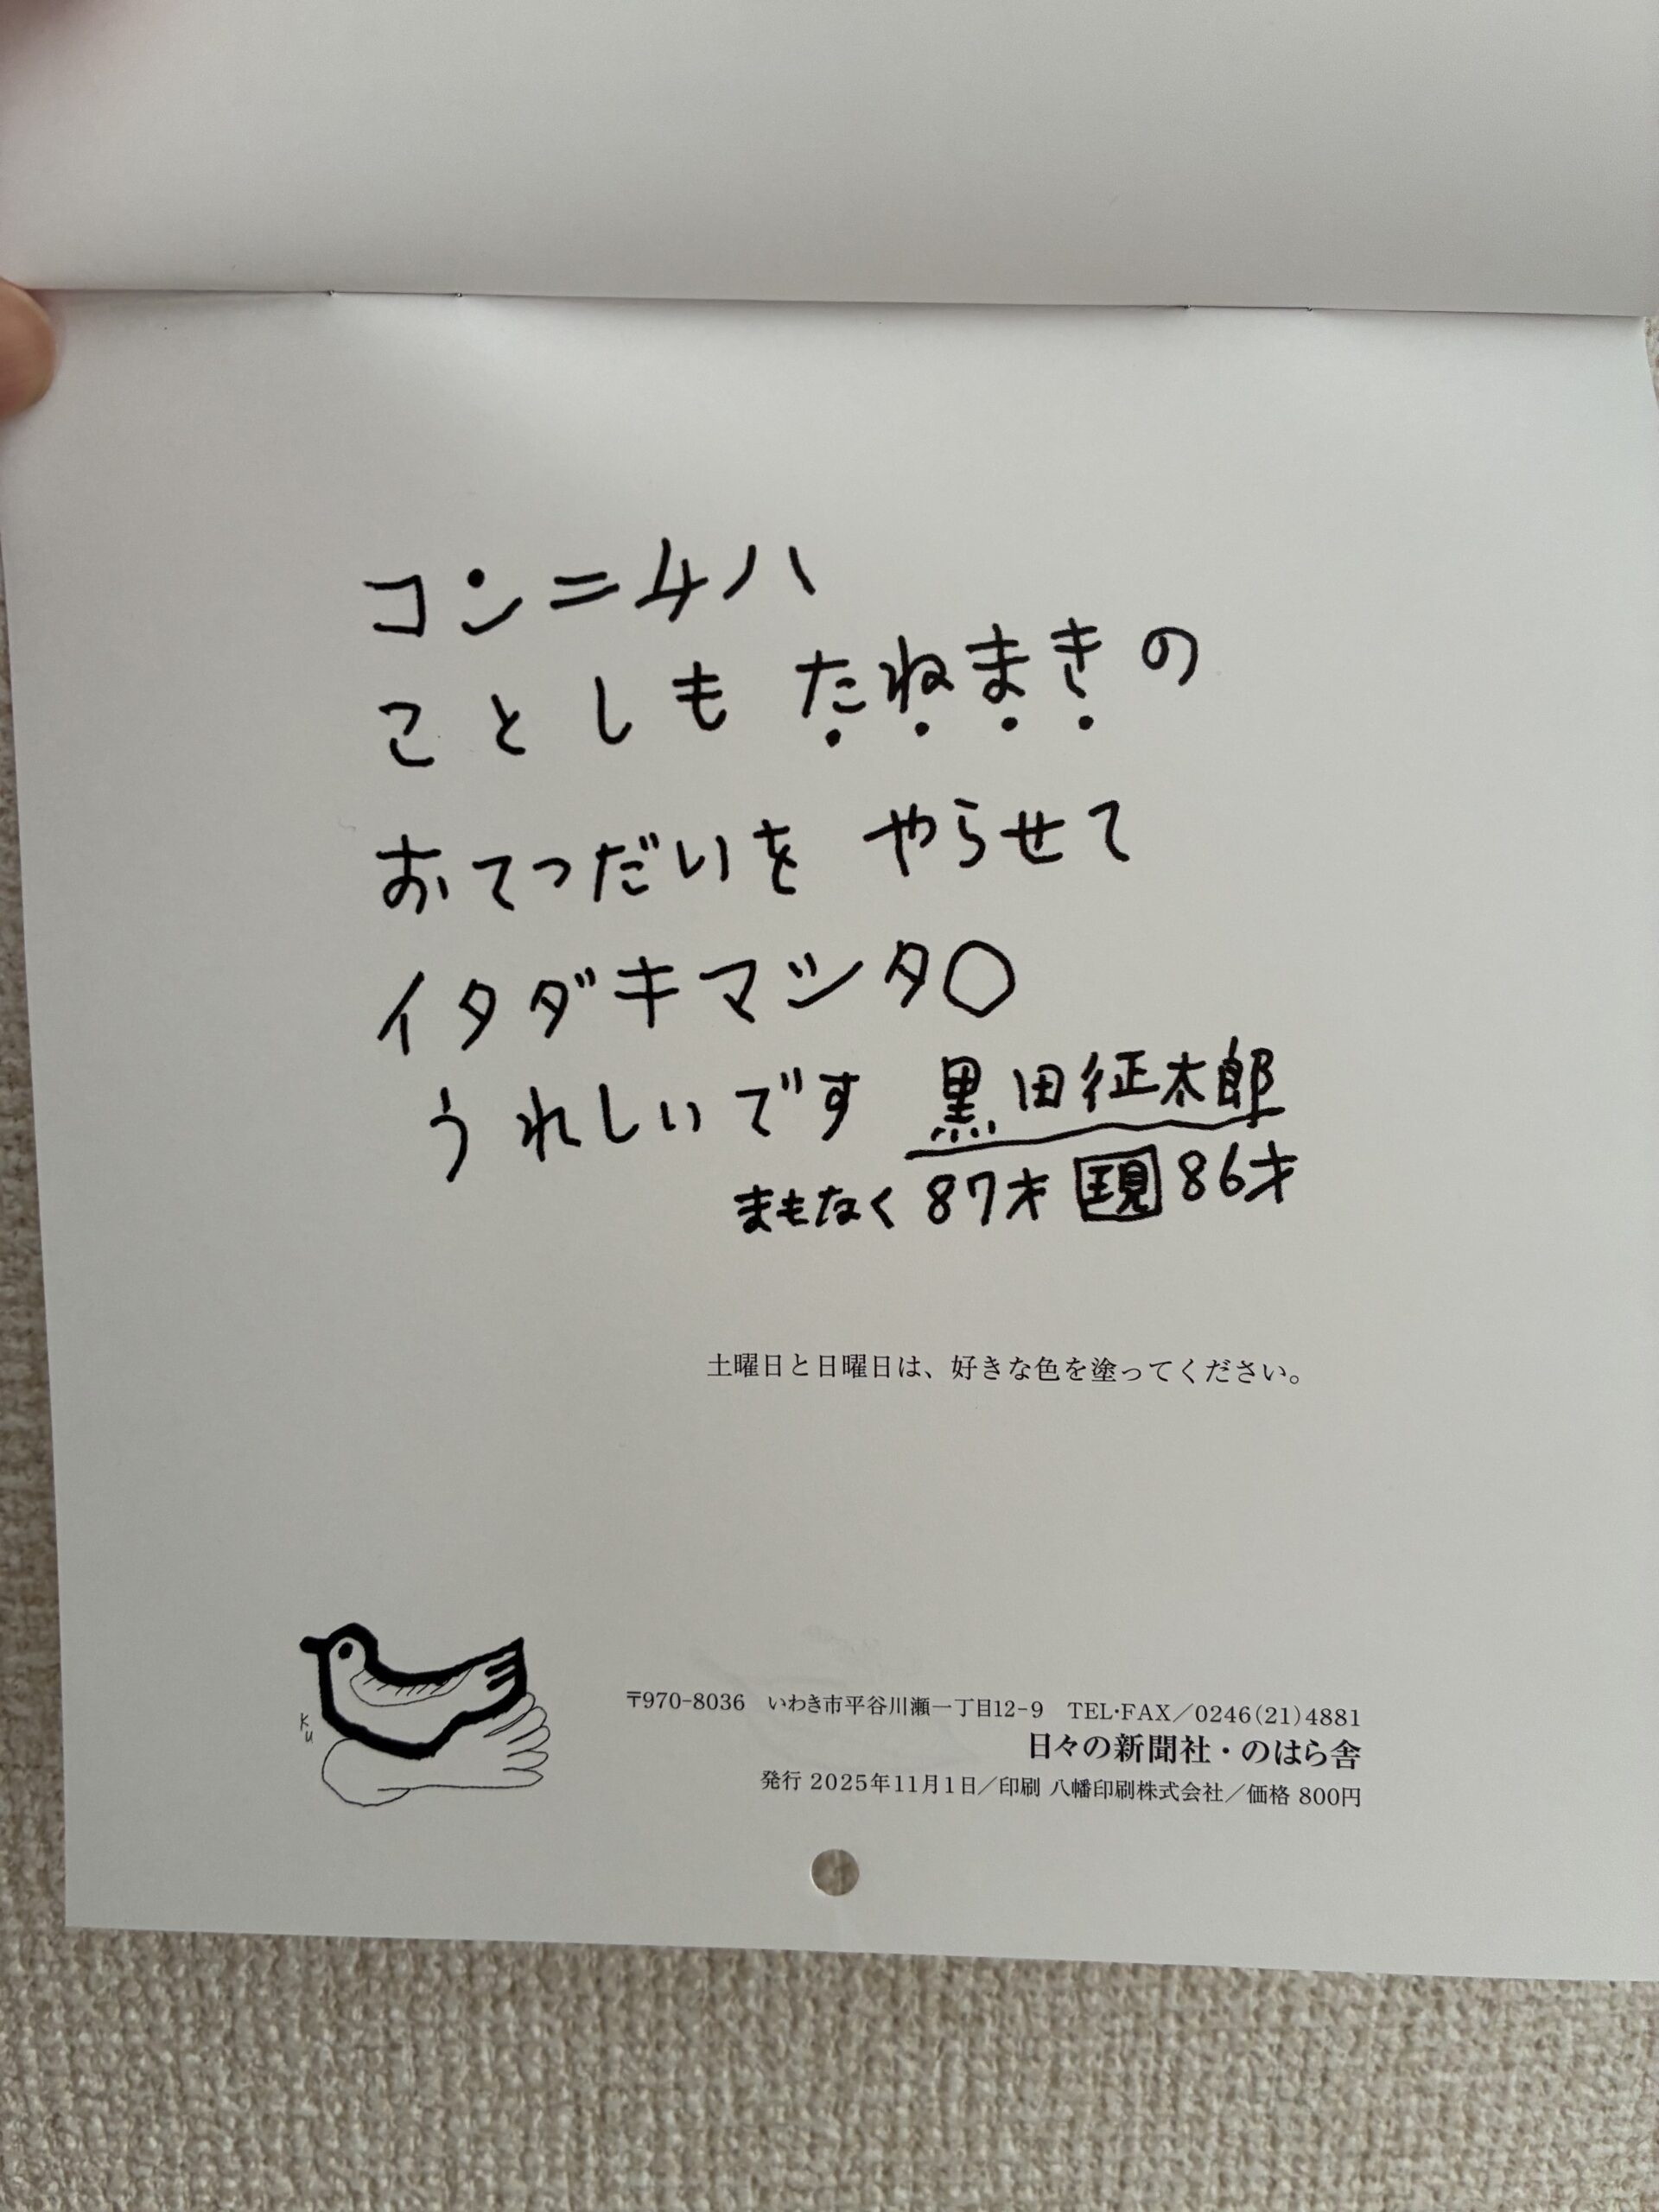 コンニチハ
ことしも たねまきの
おてつだいを やらせて
イタダキマシタ〇
うれしいです 黒田征太郎
まもなく 87才 現 86才
土曜日と日曜日は、好きな色を塗ってください。
KU
〒970-8036 いわき市平谷川瀬一丁目12-9 TEL・FAX／0246(21)4881
日々の新聞社・のはら舎
発行 2025年11月1日／印刷 八幡印刷株式会社／価格 800円